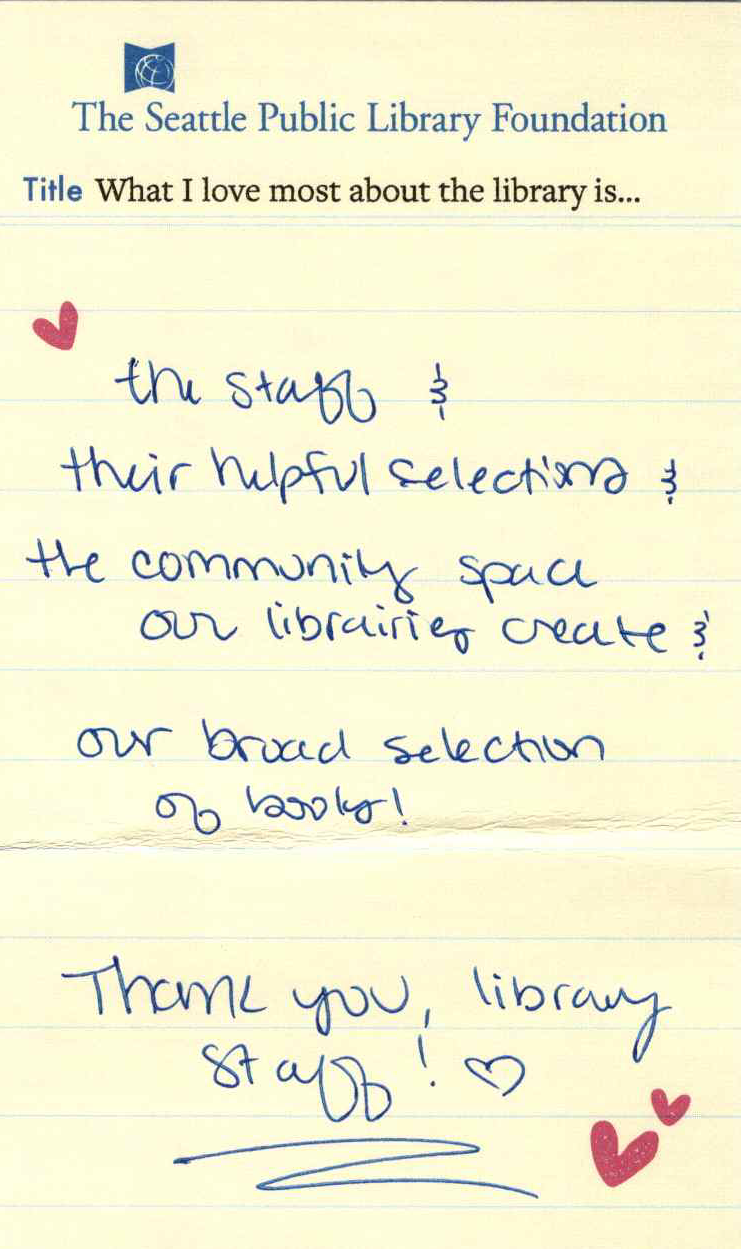 The Seattle Public Library Foundation
Title What I love most about the library is...
the staff &
their helpful selections &
the community space
our librairies create &
our broad selection
of books!
Thank you, library
staff! ♡